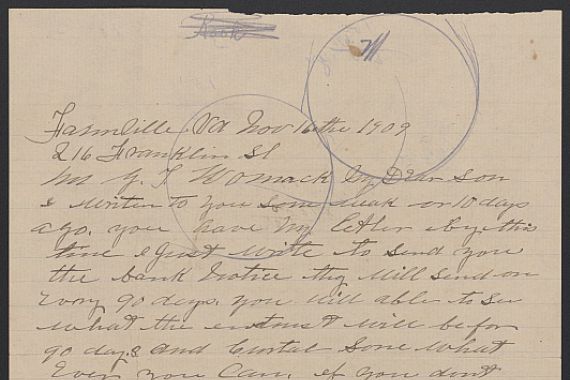 Book
Farmville Va Nov 16the 1909
216 Franklin St
Mr G T Womack My Dear Son
I writen to you som weak or 10 days
ago. you have my letter by this
time I Just write to send you
the bank Notice they Will send on
Every 90 days. you will able to see
what the entrust will be for
90 days and Curtal Some what
Ever you Can. if you don't